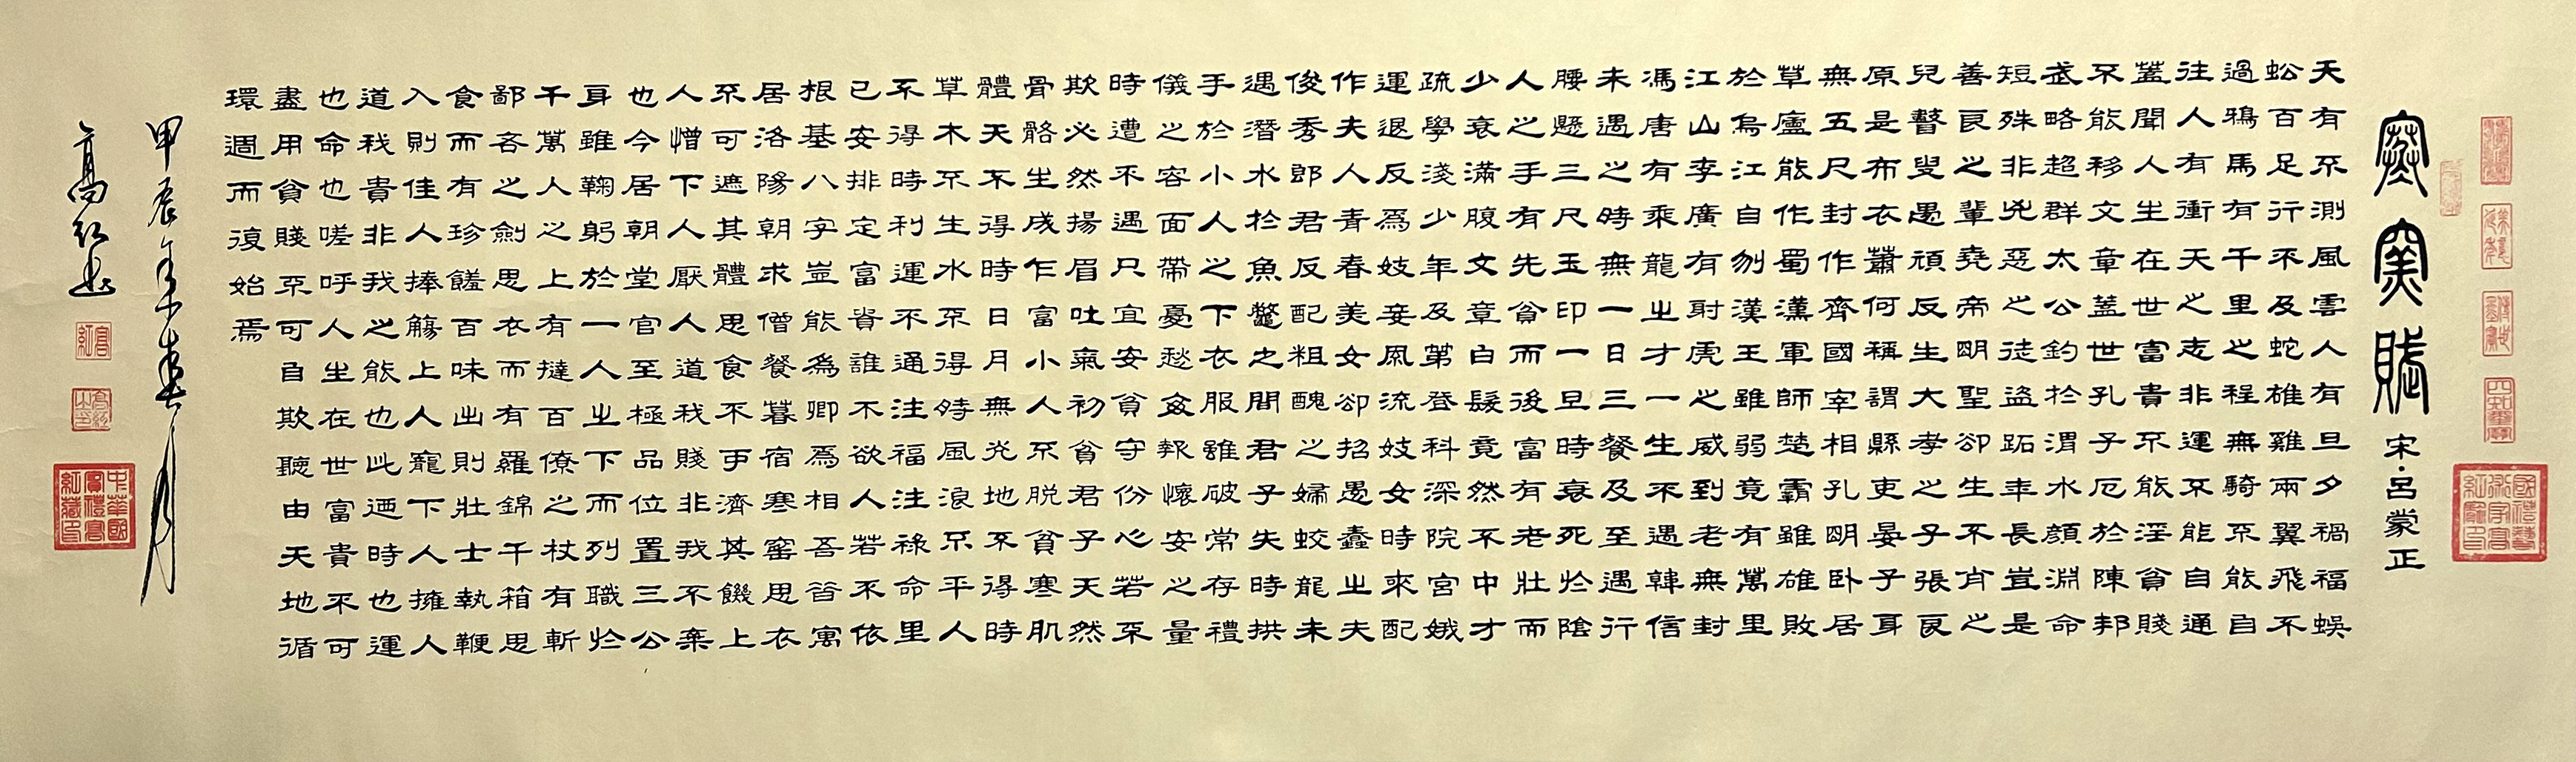 寒窯賦 宋·呂蒙正
天有不測風雲人有旦夕禍福蜈
蚣百足行不及蛇雄雞兩翼飛不
過鴉馬有千里之程無騎不能自
往人有衝天之志非運不能自通
蓋聞人生在世富貴不能淫貧賤
不能移文章蓋世孔子厄於陳邦
武略超群太公釣於渭水顏淵命
短殊非兇惡之徒盜跖年長豈是
善良之輩堯帝明聖卻生不肖之
兒瞽叟愚頑反生大孝之子張良
原是布衣蕭何稱謂縣吏晏子耳
無五尺封作齊國宰相孔明臥居
草廬能作蜀漢軍師楚霸雖雄敗
於烏江自刎漢王雖弱竟有萬里
江山李廣有射虎之威到老無封
馮唐有乘龍之才一生不遇韓信
未遇之時無一日三餐及至遇行
腰懸三尺玉印一旦時衰死於陰
人之手有先貧而後富有老壯而
少衰滿腹文章白髮竟然不中才
疏學淺少年及第登科深院宮娥
運退反為妓妾風流妓女時來配
作夫人青春美女卻招愚蠢之夫
俊秀郎君反配粗醜之婦蛟龍未
遇潛水於魚鱉之間君子失時拱
手於小人之下衣服雖破常存禮
儀之容面帶憂愁每抱懷安之量
時遭不遇只宜安貧守份心若不
欺必然揚眉吐氣初貧君子天然
骨骼生成乍富小人不脫貧寒肌
體天不得時日月無光地不得時
草木不生水不得時風浪不平人
不得時利運不通注福注祿命里
已安排定富貴誰不欲人若不依
根基八字豈能為卿為相吾皆寓
居洛陽朝求僧餐暮宿寒窰思衣
不可遮其體思食不可濟其饑上
人憎下人厭人道我賤非我不棄
也今居朝堂官至極品位置三公
耳雖鞠躬於一人之下而列職於
千萬人之上有撻百僚之杖有斬
鄙吝之劍思衣而有羅錦千箱思
食而有珍饈百味出則壯士執鞭
入則佳人捧觴上人寵下人擁人
道我貴非我之能也此迺時也運
也命也嗟呼人生在世富貴不可
盡用貧賤不可自欺聽由天地循
環週而復始焉
甲辰年春月
高红书